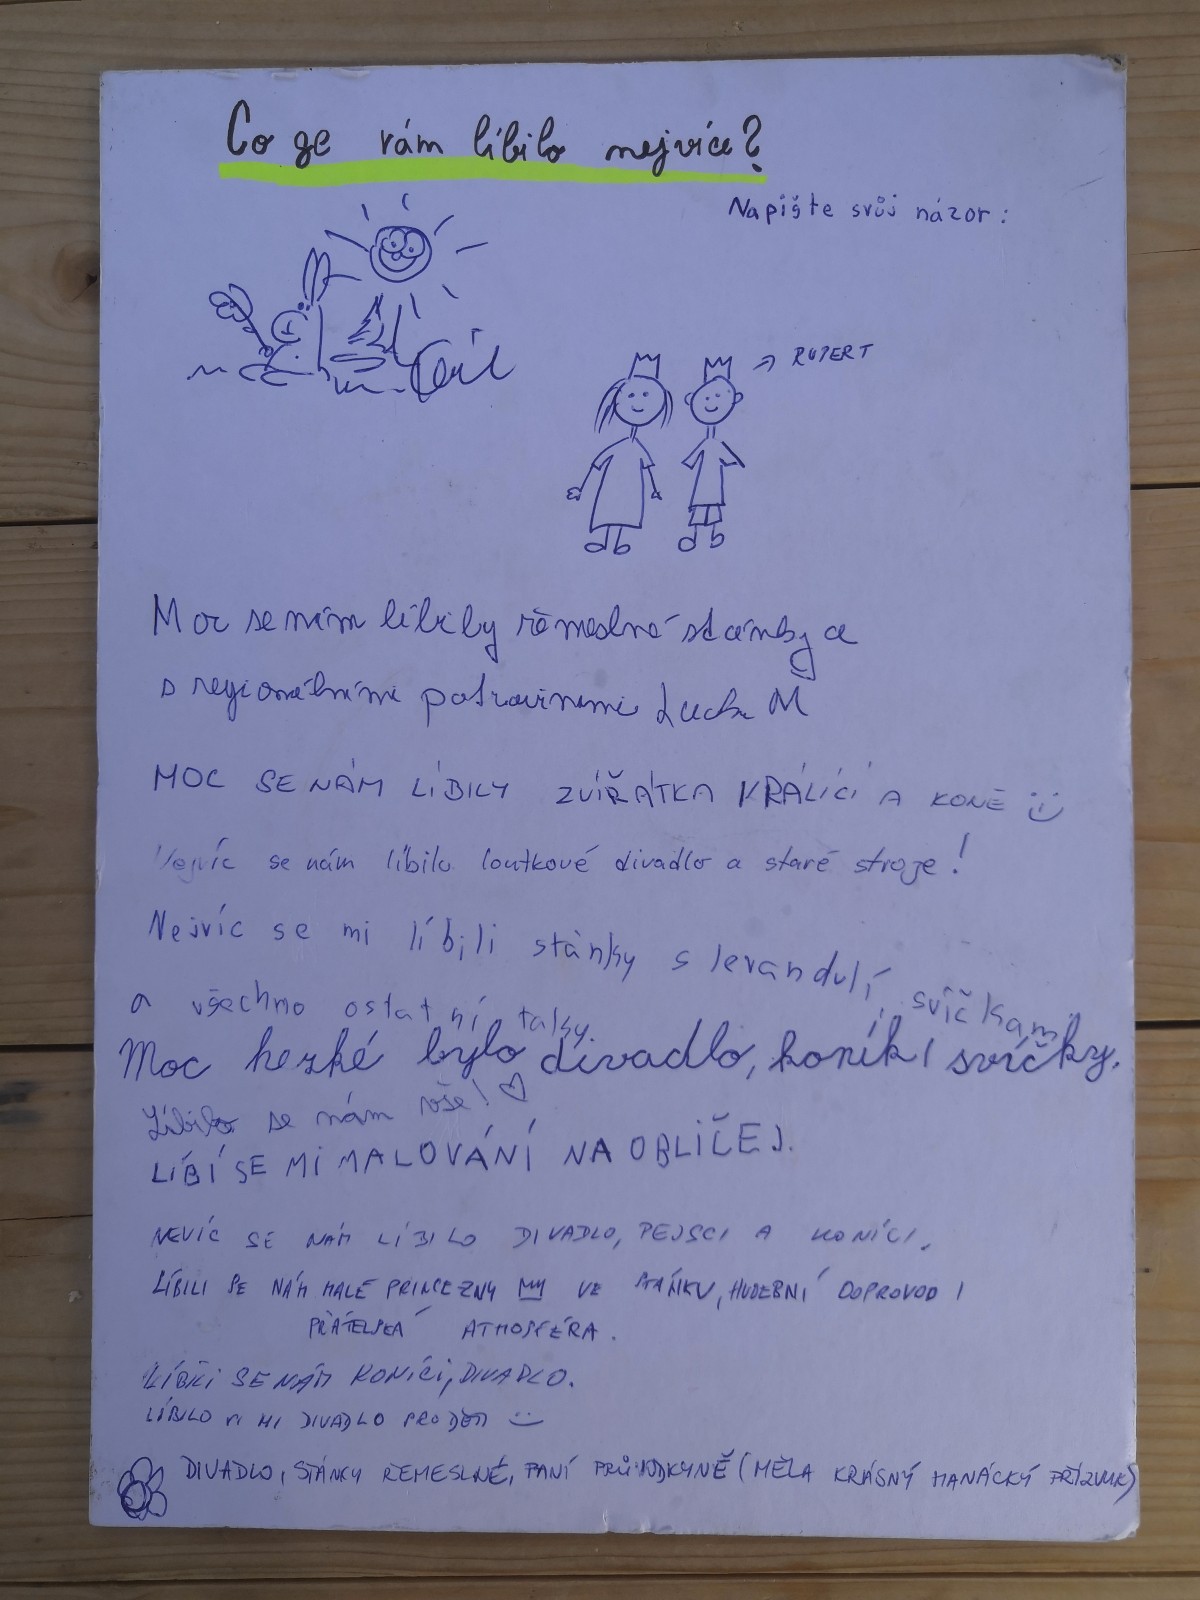 Co se vám líbilo nejvíce?
Napište svůj názor:
RUPERT
Moc se nám líbily řemeslné stánky a
s regionálními potravinami M
MOC SE NÁM LÍBILY ZVÍŘÁTKA KRÁLÍCI A KONĚ
Nejvíc se nám líbilo loutkové divadlo a staré stroje!
Nejvíc se mi líbili stánky s levandulí, svíčkami
a všechno ostatní taky.
Moc hezké bylo divadlo, koníki svíčky.
Líbilo se nám vše!
LÍBÍ SE MI MALOVÁNÍ NA OBLIČEJ.
NEVÍC SE NÁM LÍBILO DIVADLO, PEJSCI A KONÍCI.
LÍBILI SE NÁM MALÉ PRINCEZNY VE STÁNKU, HUDEBNÍ DOPROVOD I
PŘÁTELSKÁ ATMOSFÉRA.
LÍBILI SE NÁM KONÍCI, DIVADLO.
LÍBILO MI DIVADLO PRO DĚTI
DIVADLO, STÁNKY ŘEMESLNÉ, PANÍ PRŮVODKYNĚ (MĚLA KRÁSNÝ HANÁCKÝ PŘÍZVUK)